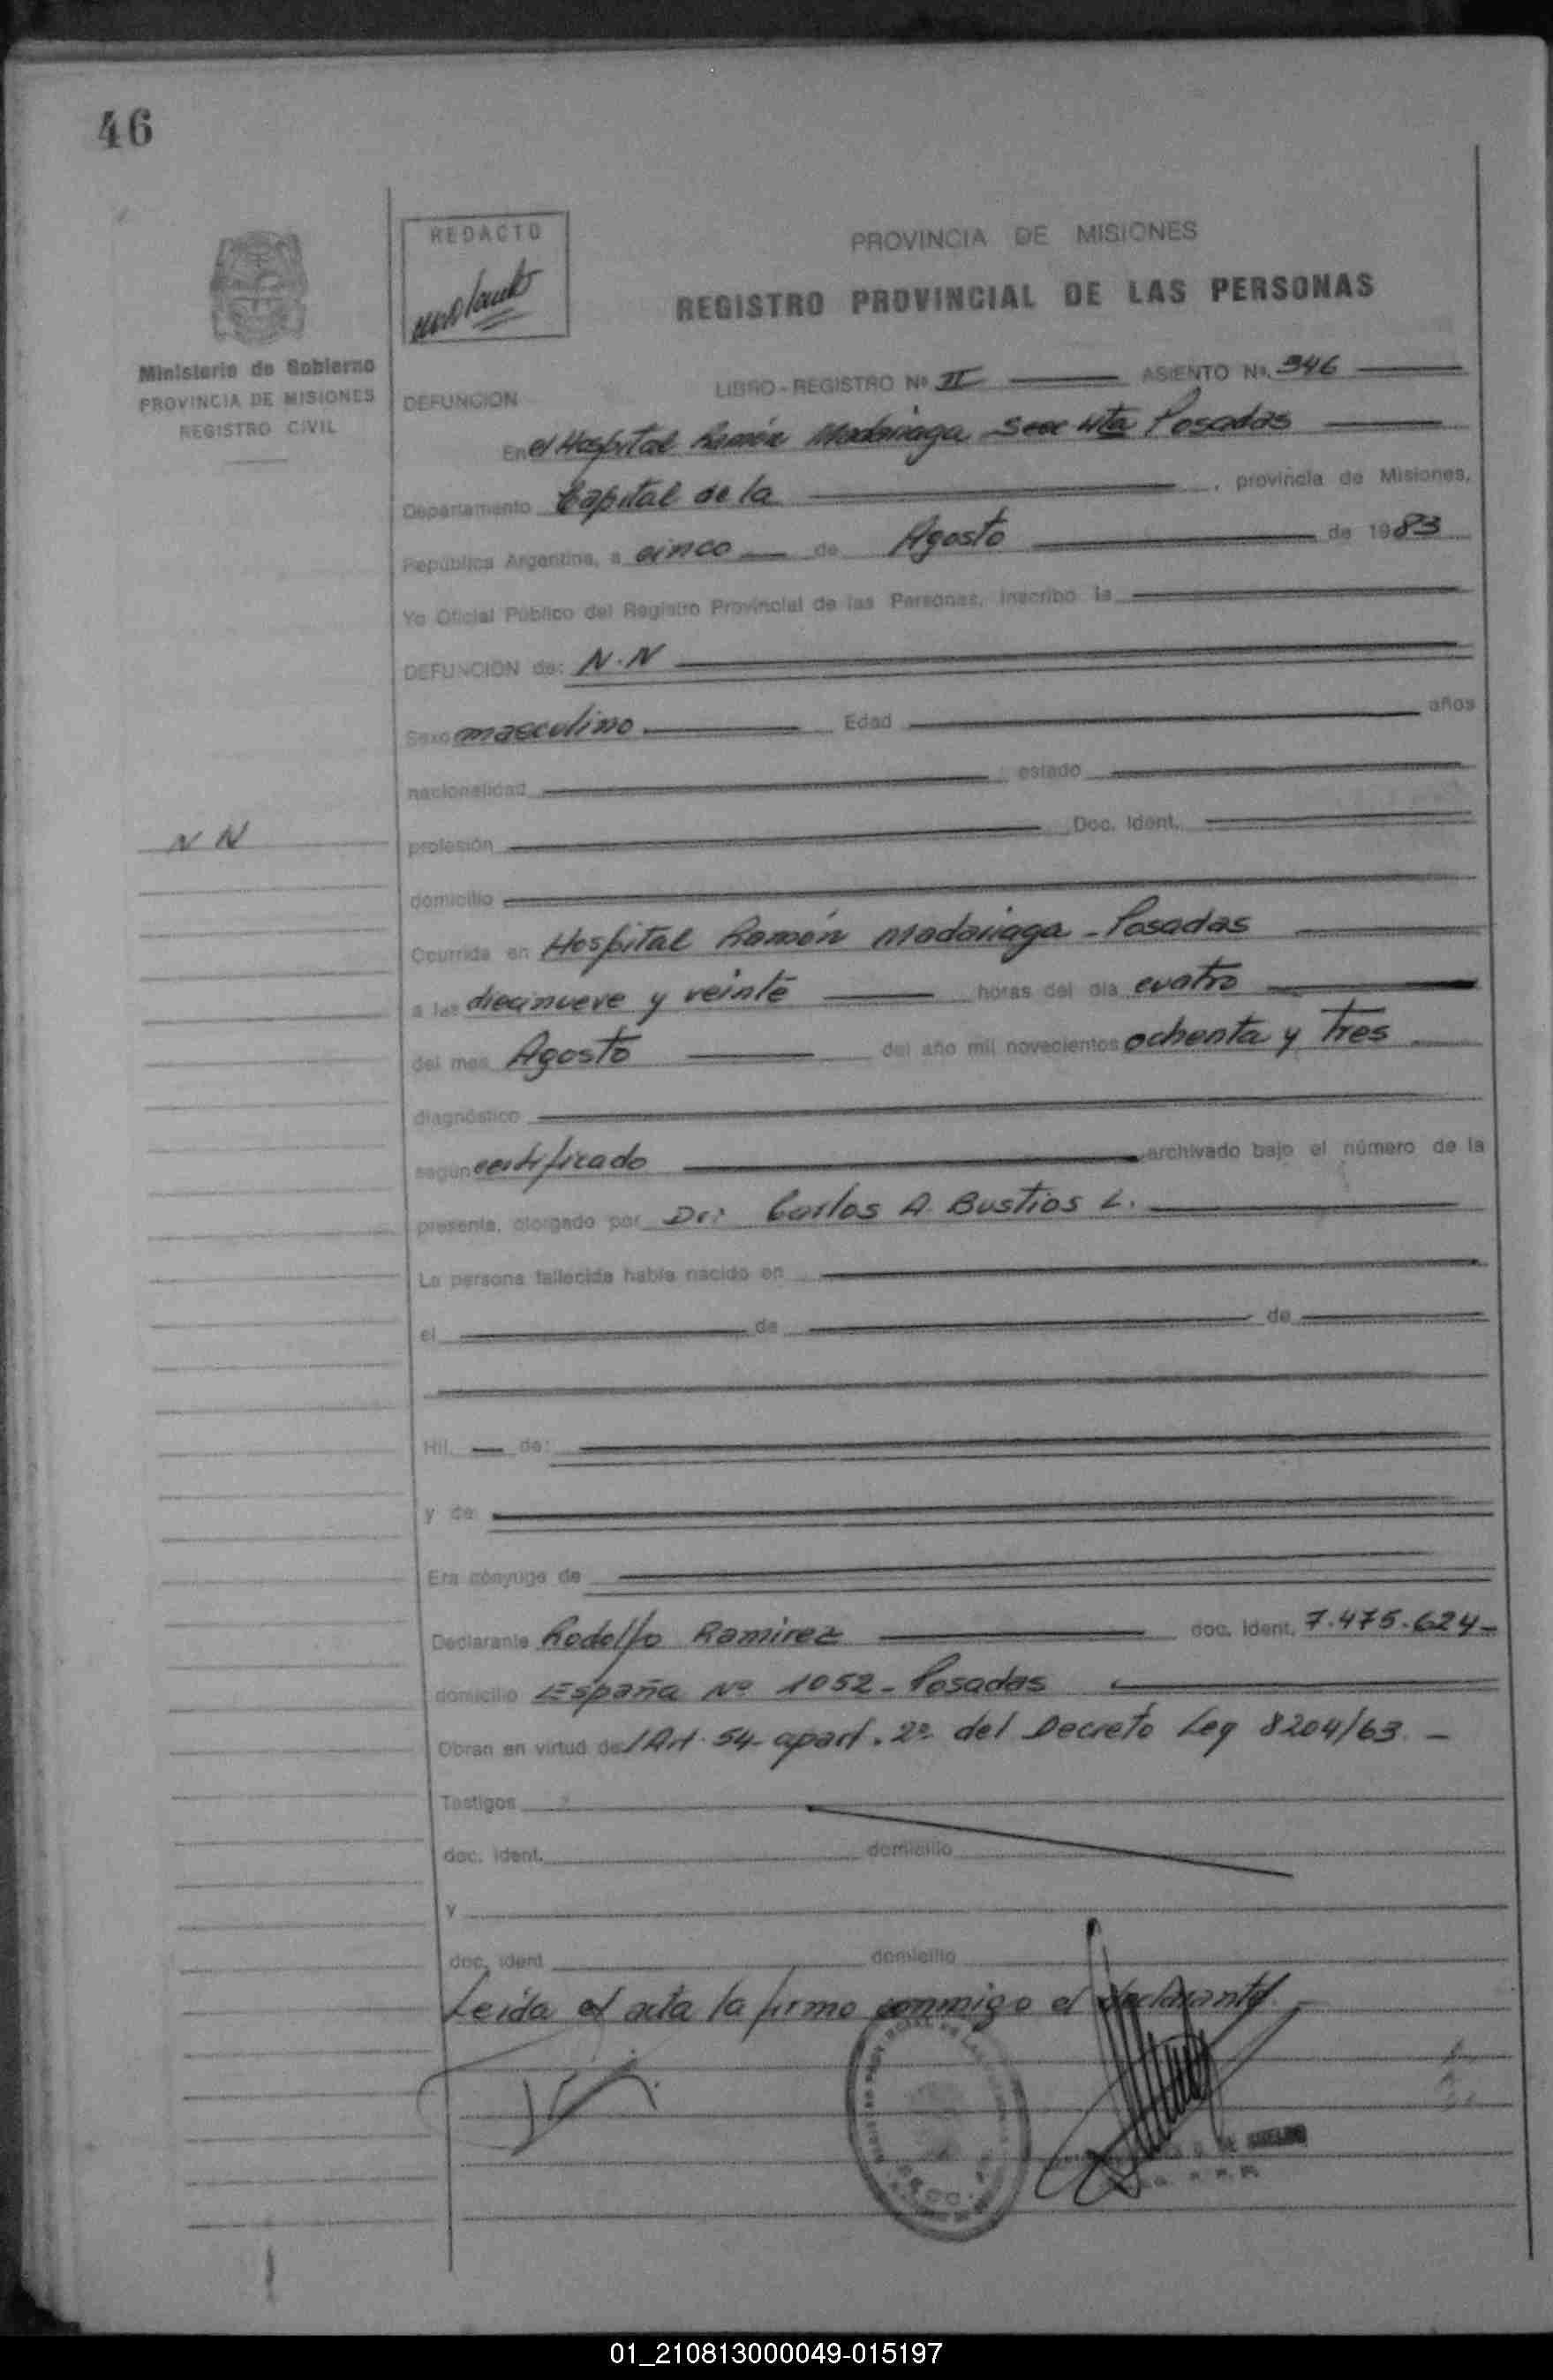 46
REDACTO
PROVINCIA DE MISIONES
REGISTRO PROVINCIAL DE LAS PERSONAS
Ministerio de Gobierno
PROVINCIA DE MISIONES
REGISTRO CIVIL
LIBRO - REGISTRO Nº II ASIENTO Nº 346
DEFUNCION
En el Hospital Ramón Madariaga Secc 4ta Posadas
Departamento Capital de la , provincia de Misiones,
República Argentina, a cinco de Agosto de 1983
Yo Oficial Público del Registro Provincial de las Personas, inscribo la
DEFUNCION de: N.N
Sexo masculino Edad años
nacionalidad estado
N N
profesión Doc. Ident.
domicilio
Ocurrida en Hospital Ramón Madariaga - Posadas
a las diecinueve y veinte horas del día cuatro
del mes Agosto del año mil novecientos ochenta y Tres
diagnóstico
según certificado archivado bajo el número de la
presente, otorgado por Dr: Carlos A. Bustios L.
La persona fallecida había nacido en
el de de
Hij de:
y de
Era cónyuge de
Declarante Rodolfo Ramirez doc. ident. 7.475.624-
domicilio España Nº 1052 - Posadas
Obran en virtud del Art. 54- apart. 2º del Decreto Ley 8204/63. -
Testigos
doc. ident. domicilio
y
doc. ident domicilio
Leída el acta la firmo conmigo el declarante
01_210813000049-015197